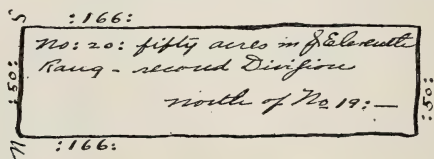 S
:166:
:50:
no: 20: fifty acres in ye Eleventh
Rang - second Division
north of No 19:—
:50:
N
:166: